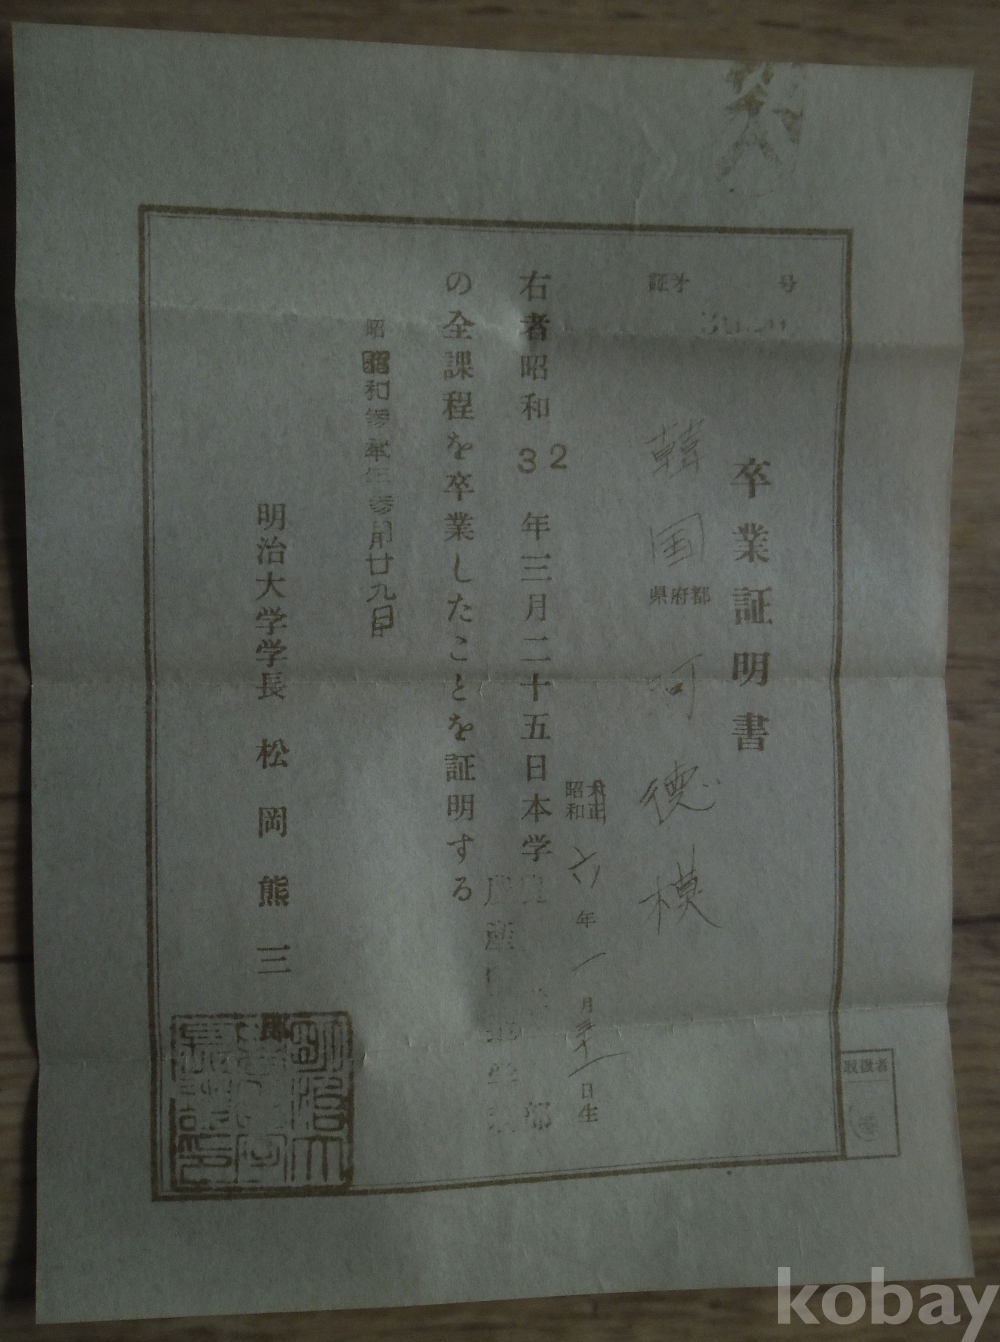 証才 号
卒業証明書
韓国
都府県
河德模
大正
昭和
六年一月
日生
右者昭和32年三月二十五日本学
部
の全課程を卒業したことを証明する
昭
昭和参
年参月廿九日
明治大学学長 松岡熊三郎
取扱者
kobay